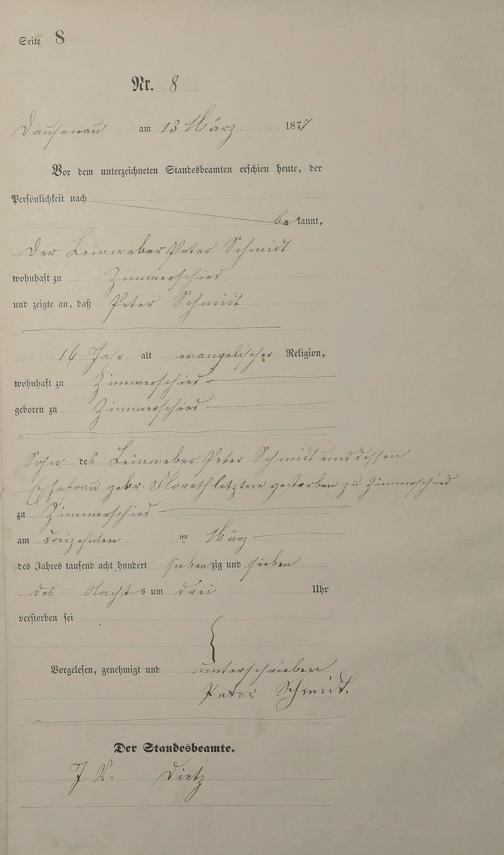 Seite 8
Nr. 8
Dausenau am 13 März 1877
Vor dem unterzeichneten Standesbeamten erschien heute, der
Persönlichkeit nach
bekannt,
Der Leinweber Peter Schmidt
wohnhaft zu Zimmerschied
und zeigte an, daß Peter Schmidt
16 Jahr alt evangelischer Religion,
wohnhaft zu Zimmerschied
geboren zu Zimmerschied
Sohn des Leinweber Peter Schmidt und dessen
Ehefrau gebr. letztere gestorben zu Zimmerschied
zu Zimmerschied
am dreizehnten ten März
des Jahres tausend acht hundert siebenzig und sieben
des Nachts um drei Uhr
verstorben sei
Vorgelesen, genehmigt und unterschrieben
Peter Schmidt.
Der Standesbeamte.
Dietz